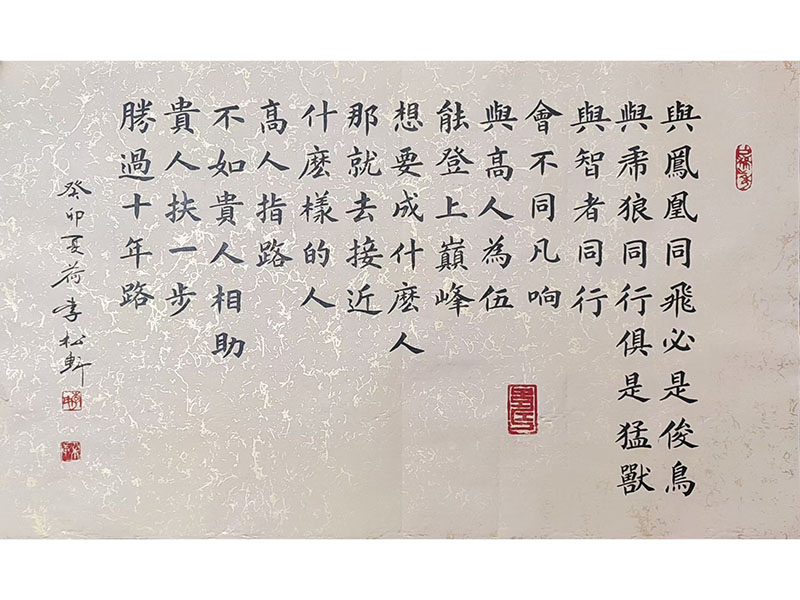 與鳳凰同飛必是俊鳥
與乕狼同行俱是猛獸
與智者同行
會不同凡响
與高人為伍
能登上巔峰
想要成什麼人
那就去接近
什麼樣的人
高人指路
不如貴人相助
貴人扶一步
勝過十年路
癸卯夏荷李松軒